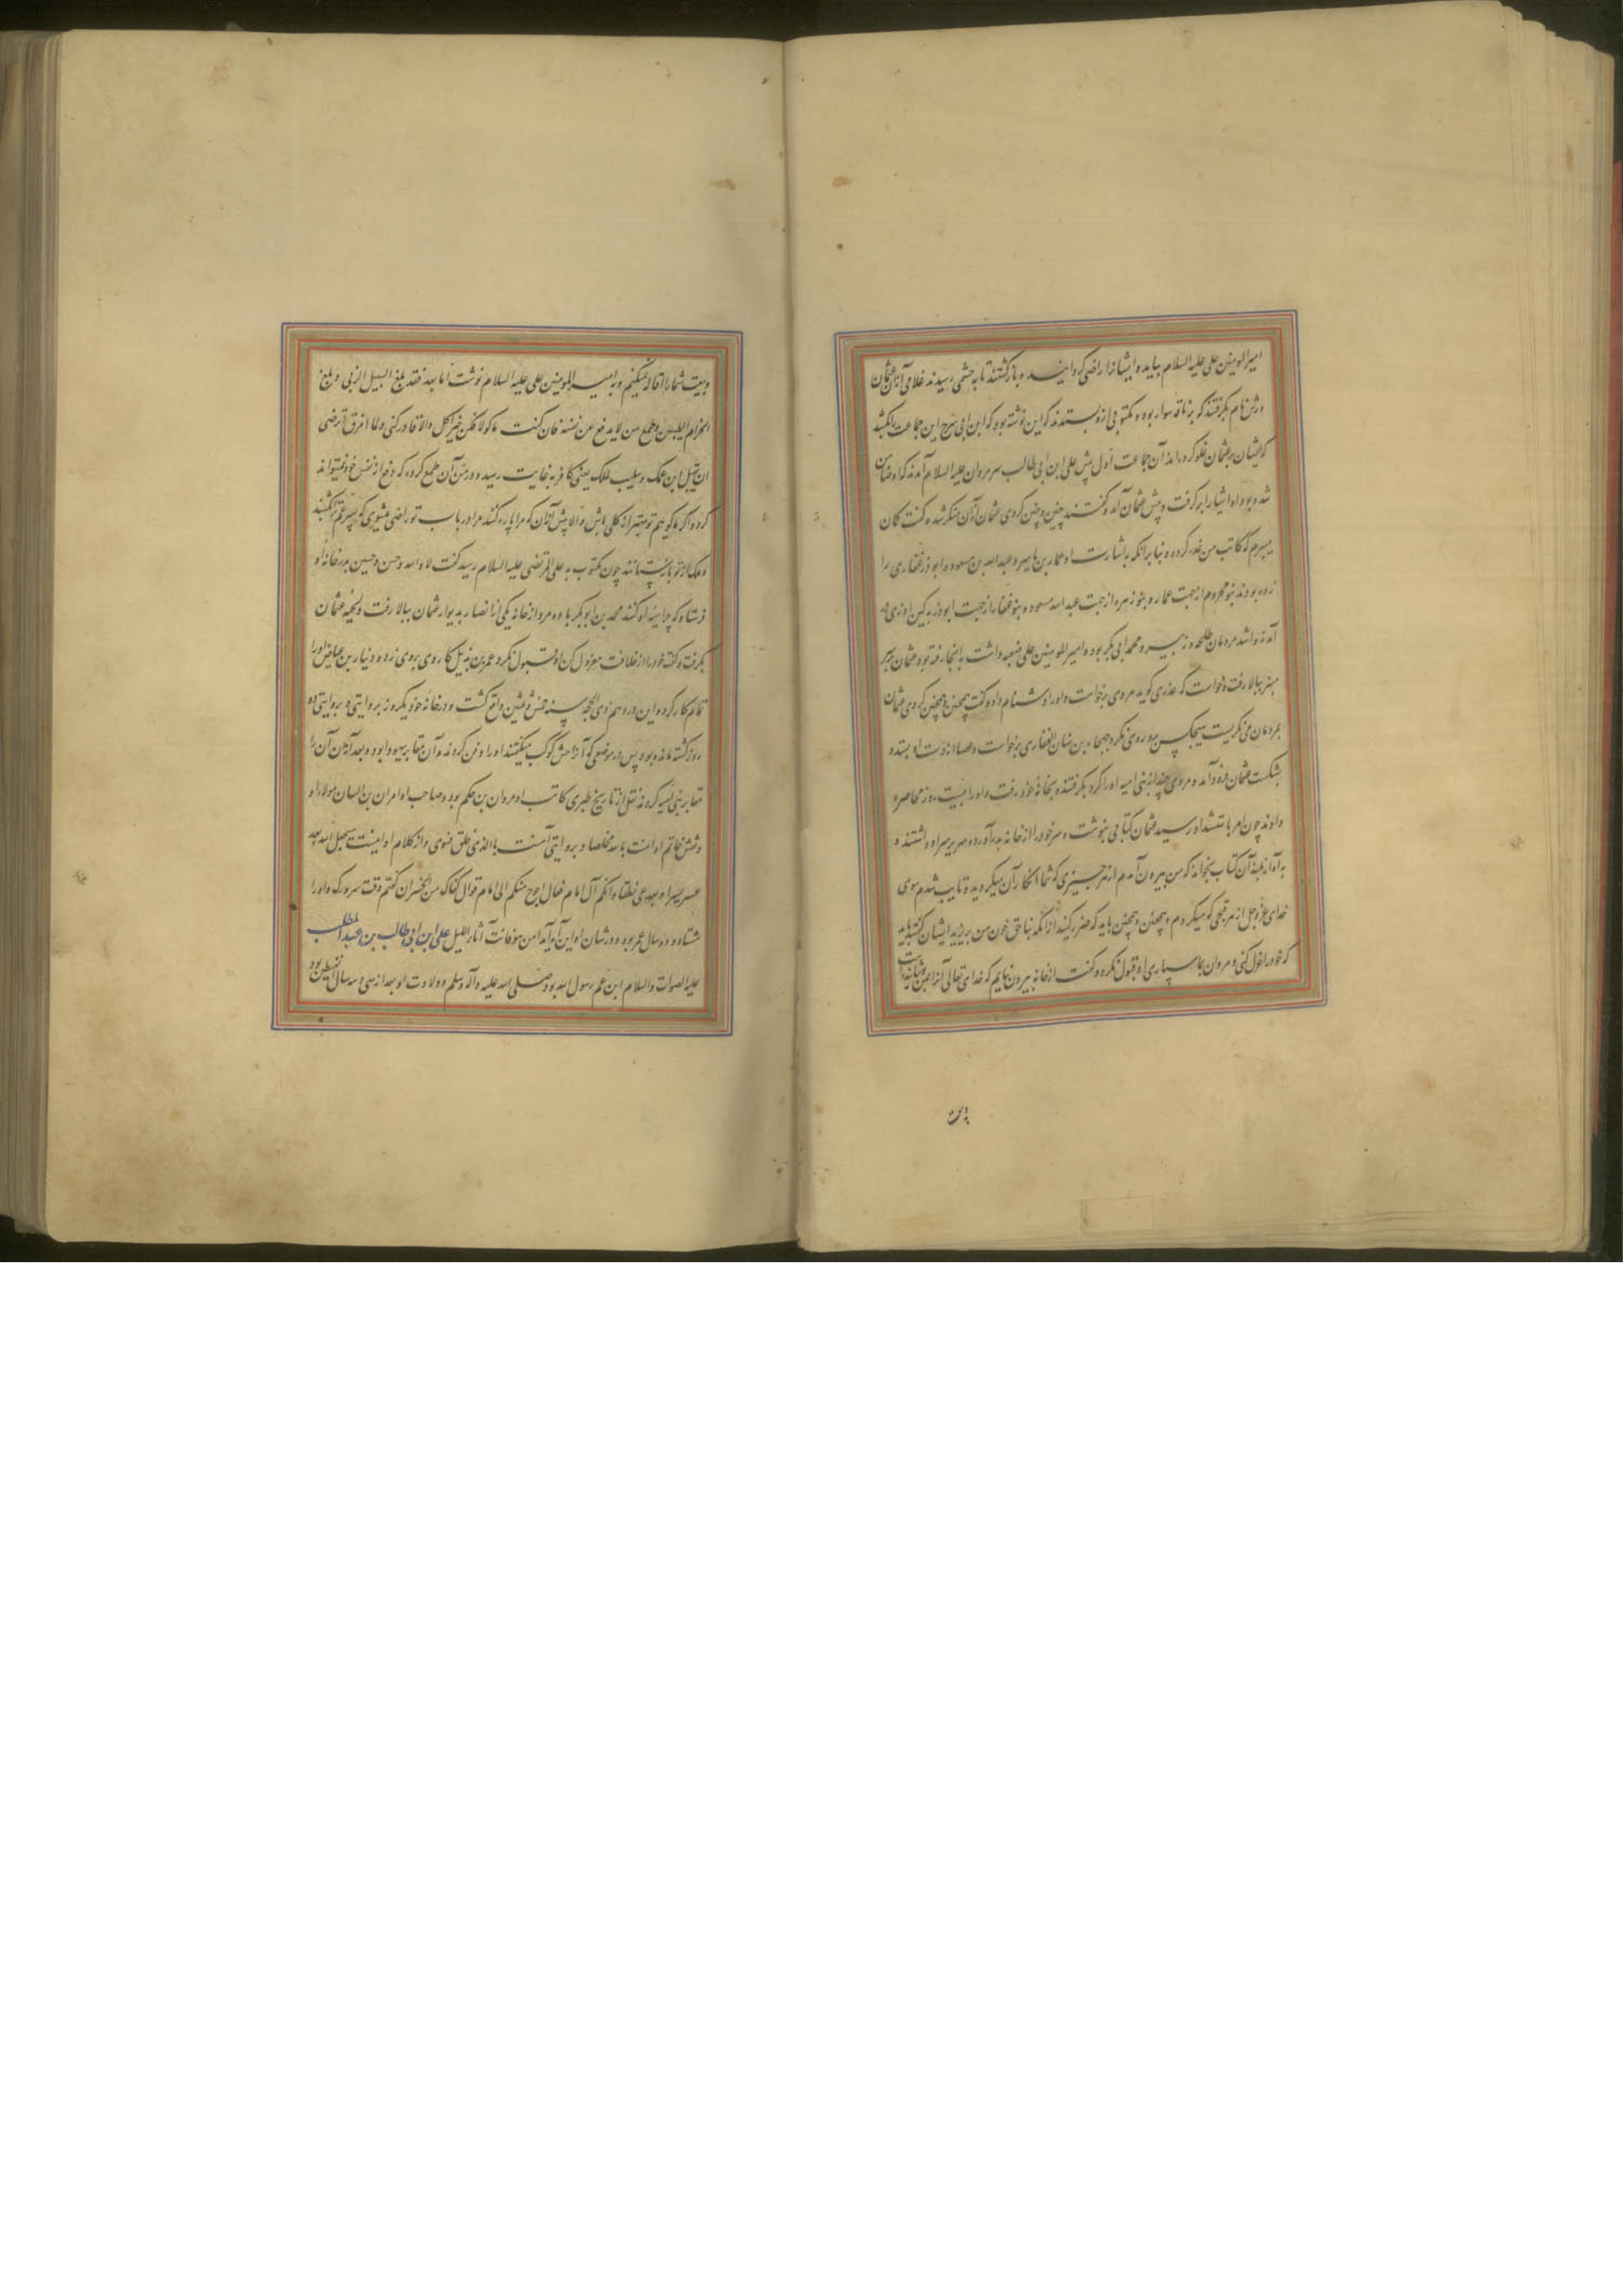 امیرالمومنین علی علیه السلام بیاید و ایشانرا راضی کردانید و بازکشتند تا به حشمی رسیدند غلامی ازان عثمان
نام بکرفتند که بر ناقه سوار بود و مکتوبی ازو بستدند که این نوشته بود که ابن ابی سرح این جماعت را بکشد
که ایشان بر عثمان غلو کرده اند آن جماعت اول پیش علی ابن ابی طالب علیه السلام آمدند که او ضامن
شده بود او ایشانرا برکرفت و پیش عثمان آمد و کفتند چنین و چنین کردی عثمان ازان منکر شد و کفت کمان
میبرم که کاتب من غدر کرده و بنا برانکه به اشارت او عمار بن یاسر و عبد الله بن مسعود و ابوذر غفاری را
زده بودند بنو مخزوم از جهت عمار و بنو زهره از جهت عبد الله مسعود و بنو غفار از جهت ابوذر به کین او
طلحه و زبیر و محمد ابی بکر بود و امیرالمومنین علی ضیعه داشت به آنجا رفته بود عثمان بر سر
منبر بالا رفت و خواست که عذری کوید مردی برخواست و او را دشنام داد و کفت همچنین و همچنین کردی عثمان
بمردمان می نکریست هیچکس بدو روی نکرد جهجاه بن سنان الغفاری برخواست و عصا از دست او بستد و
بشکست عثمان فرود آمد و مردی چند از بنی امیه او را کرد بکرفتند و بخانه خود رفت و او را بیست روز محاصره
دادند چون امر باشتداد رسید عثمان کتابی بنوشت و سر خود را از خانه بدر آورد و سر بر سر او داشتند و
به آواز بلند آن کتاب بخواند که من بیرون آمدم از هر چیزی که شما انکار آن میکردید و تایب شدم سوی
خدای عز و جل از هر قبحی که میکردم و همچنین و همچنین باید که حذر کنید از آنکه بناحق خون من بریزید ایشان کفتند باید
که خود را عزل کنی و مروان بما سپاری او قبول نکرد و کفت از خانه بیرون نیایم که خدای تعالی
و بیعت شما را اقاله نمیکنم و به امیرالمومنین علی علیه السلام نوشت اما بعد فقد بلغ السیل الزبی و بلغ
الحزام الطبیین و طمع من لا یدفع عن نفسه فان کنت ماکولا فکن خیر اکل والا فادرکنی و لما امزق اترضی
ان یقتل ابن عمک و یسلب ملکک یعنی کار به غایت رسید و در من آن طمع کرده که دفع از نفس خود نمیتواند
کرد و اکر ماکویم تو بهتر از کلی باش و الا پیش ازان که مرا پاره کنند مرا دریاب تو راضی میشوی که پسر عم ترا بکشند
و ملک از تو بازستانند چون مکتوب به علی المرتضی علیه السلام رسید کفت لا والله و حسن و حسین بدر خانه او
فرستاد که حراست او کنند محمد بن ابوبکر با دو مرد از خانه یکی از انصار به دیوار عثمان ببالا رفت و لحیه عثمان
بکرفت و کفت خود را از خلافت معزول کن او قبول نکرد کاردی بروی زد و نیار بن عیاض او را
تمام کار کرد و این در دهم ذی الحجه سنه خمس و ثلثین واقع کشت و در خانه خود یکروز بروایتی و بروایتی دو
روز کشته مانده بود پس در موضعی که آنرا حش کوکب میکفتند او را دفن کردند و آن مقابر یهود ابود و بعد ازان آن را
مقابر بنی امیه کردند نقل از تاریخ طبری کاتب او مروان بن حکم بود و صاحب او امران بن السان مولا او
و نقش خاتم او امنت بالله مخلصا و بروایتی آمنت بالذی خلق فسوی و از کلام او اینست سیجعل الله بعد
عسر یسرا و بعد عی نطقا و انکم الی امام فعال احوج منکم الی امام قوال
هشتاد و دو سال عمر بود و در شان او این آیه آمد امن هو قانت آناء اللیل علی ابن ابی طالب بن عبد المطلب
علیه الصلوات والسلام ابن عم رسول الله بود صلی الله علیه و آله و سلم و ولادت او بعد از سی و سه سال